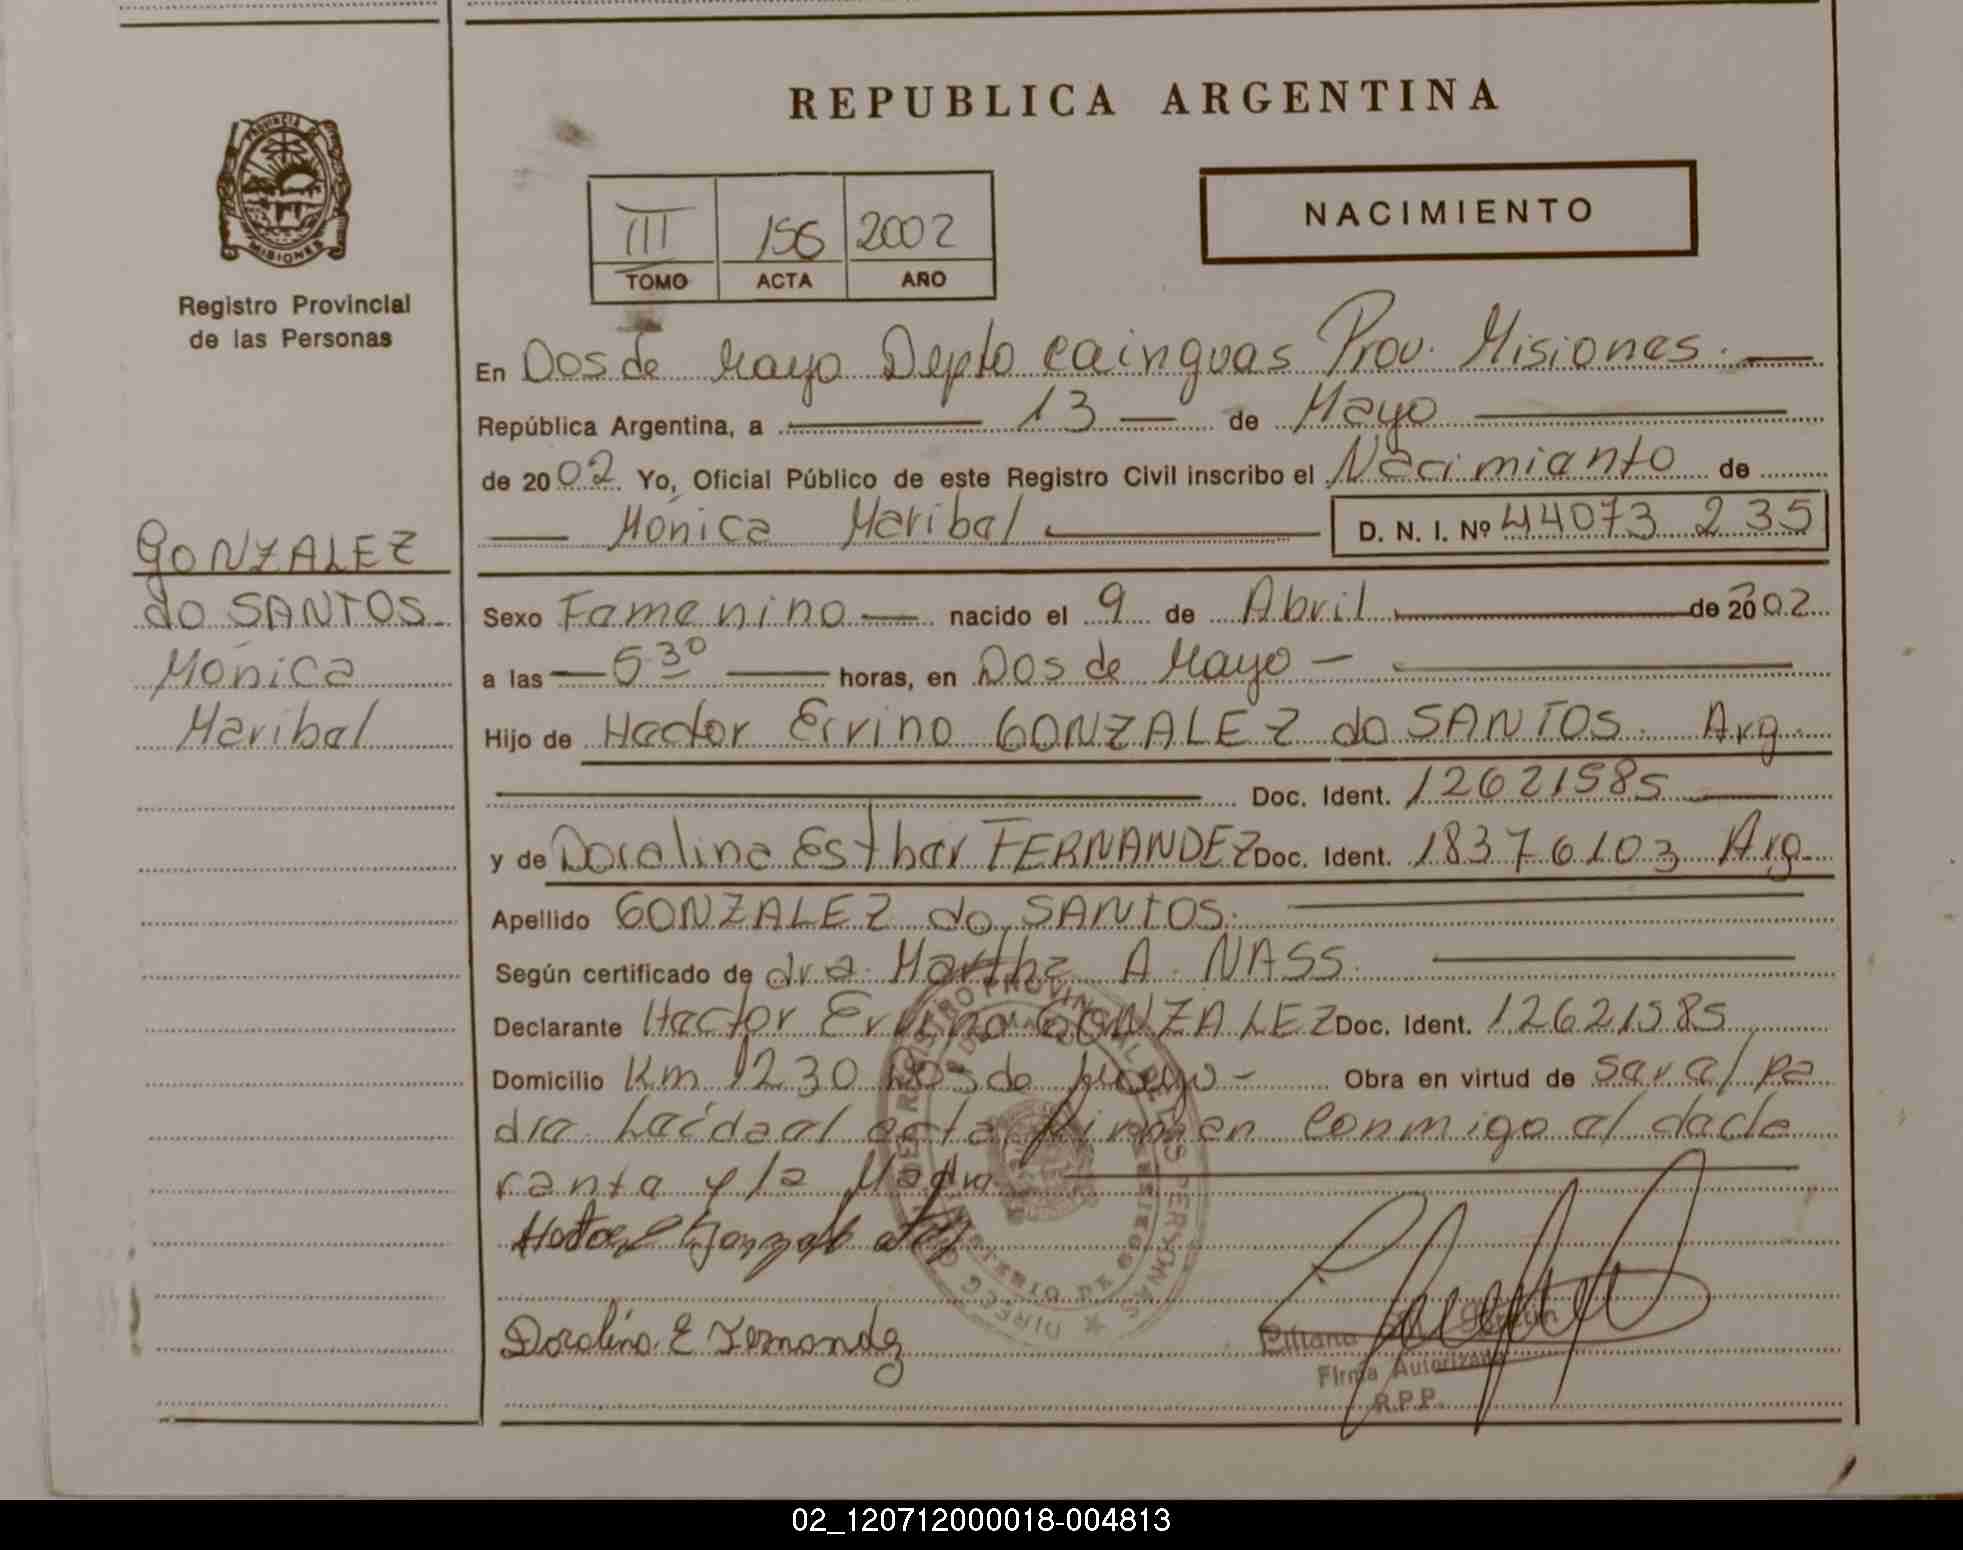 REPUBLICA ARGENTINA
PROVINCIA DE
MISIONES
Registro Provincial
de las Personas
III 156 2002
TOMO ACTA AÑO
NACIMIENTO
En Dos de Mayo Depto Cainguas Prov. Misiones.
República Argentina, a 13 de Mayo
de 2002 Yo, Oficial Público de este Registro Civil inscribo el Nacimiento de
Mónica Maribel D. N. I. Nº 44073235
GONZALEZ
do SANTOS
Mónica
Maribel
Sexo Femenino nacido el 9 de Abril de 2002
a las 5 30 horas, en Dos de Mayo
Hijo de Hector Ervino GONZALEZ do SANTOS. Arg.
Doc. Ident. 12621585
y de Doralina Esther FERNANDEZ Doc. Ident. 18376103 Arg.
Apellido GONZALEZ do SANTOS.
Según certificado de dra. Martha A. NASS.
Declarante Hector Ervino GONZALEZ Doc. Ident. 12621585
Domicilio Km 1230 Dos de Mayo - Obra en virtud de ser el pa
dre. Leída el acta firman conmigo el decla
rante y la Madre
Doralina E Fernandez
Firma Autorizada
R.P.P.
02_120712000018-004813